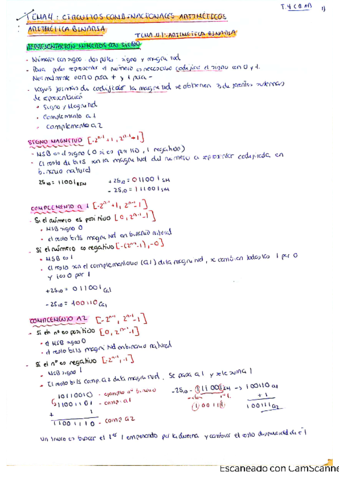 TEMA 4: CIRCUITOS COMBINACIONALES ARITMÉTICOS
ARITMÉTICA BINARIA TEMA 4.1: ARITMÉTICA BINARIA
REPRESENTACIÓN NÚMEROS CON SIGNO
- Números con signo: dos partes signo y magnitud.
- Para poder representar el número es necesario codificar el signo en 0 y 1.
Normalmente con 0 para + y 1 para -
- Según forma de codificar la magnitud se obtienen sistemas
de representación
• Signo y Magnitud
• Complemento a 1
• Complemento a 2
SIGNO MAGNITUD [-2ⁿ⁻¹+1, 2ⁿ⁻¹-1]
• MSB es el signo (0 si es positivo, 1 negativo)
• El resto de bits son la magnitud del número a representar codificada en
binario natural
25₁₀ = 11001 +25₁₀ = 011001 SM
-25₁₀ = 111001 SM
COMPLEMENTO a 1 [-2ⁿ⁻¹+1, 2ⁿ⁻¹-1]
- Si el número es positivo [0, 2ⁿ⁻¹-1]
• MSB signo 0
• el resto bits magnitud en binario natural
- Si el número es negativo [-(2ⁿ⁻¹-1), -0]
• MSB es 1
• El resto son el complementario (a1) de la magnitud, se cambian todos los 1 por 0
y los 0 por 1
+25₁₀ = 011001 Ca1
-25₁₀ = 100110 Ca1
COMPLEMENTO A2 [-2ⁿ⁻¹, 2ⁿ⁻¹-1]
- Si el nº es positivo [0, 2ⁿ⁻¹-1]
• el MSB signo 0
• el resto bits magnitud en binario natural
- Si el nº es negativo [-2ⁿ⁻¹, -1]
• MSB signo 1
• El resto bits comp. a2 de la magnitud. Se pasa a1 y se le suma 1
- comp. a1
+ 1
11001110 - comp a2
Un truco es buscar el 1er 1 empezando por la derecha y cambiar el resto después del 1er 1
Escaneado con CamScanne